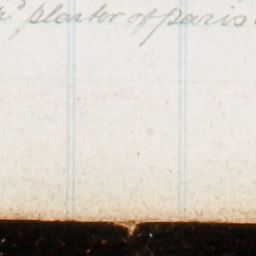 plaster of paris